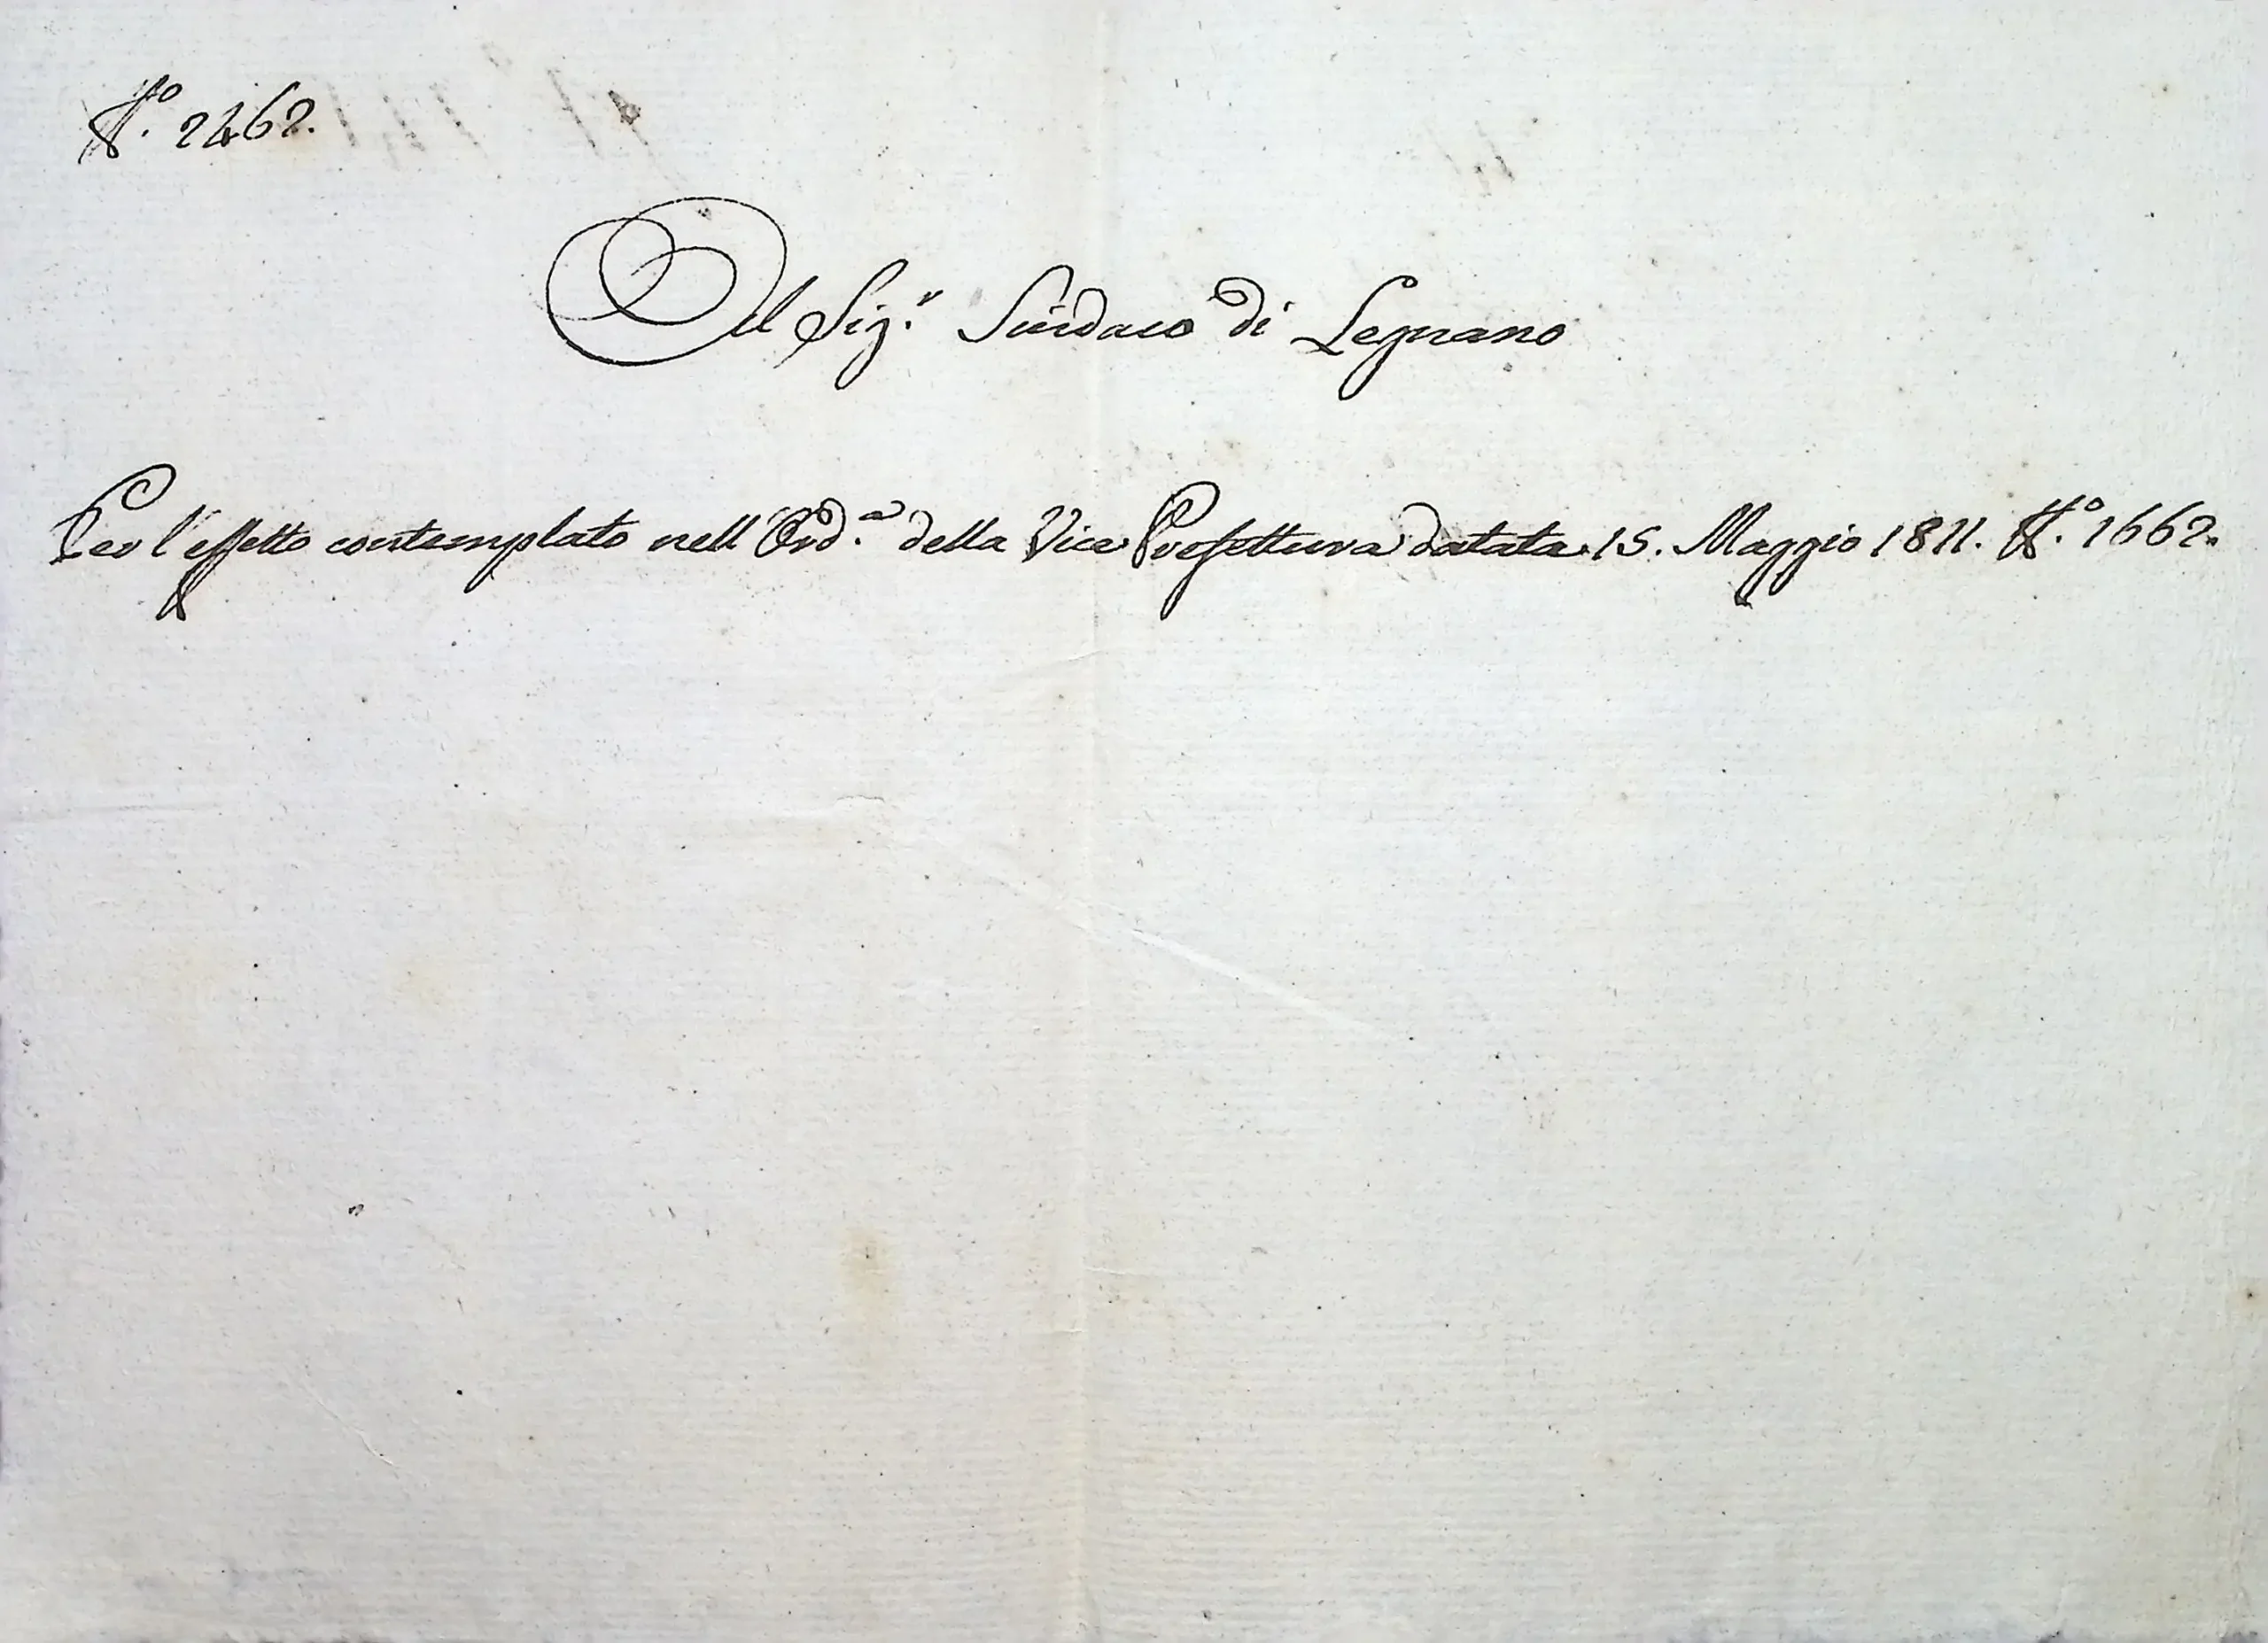 N.o 2462.
Al Sig.r Sindaco di Legnano
Per l'effetto contemplato nell'Ord.a della Vice Prefettura datata 15. Maggio 1811. N.o 1662.